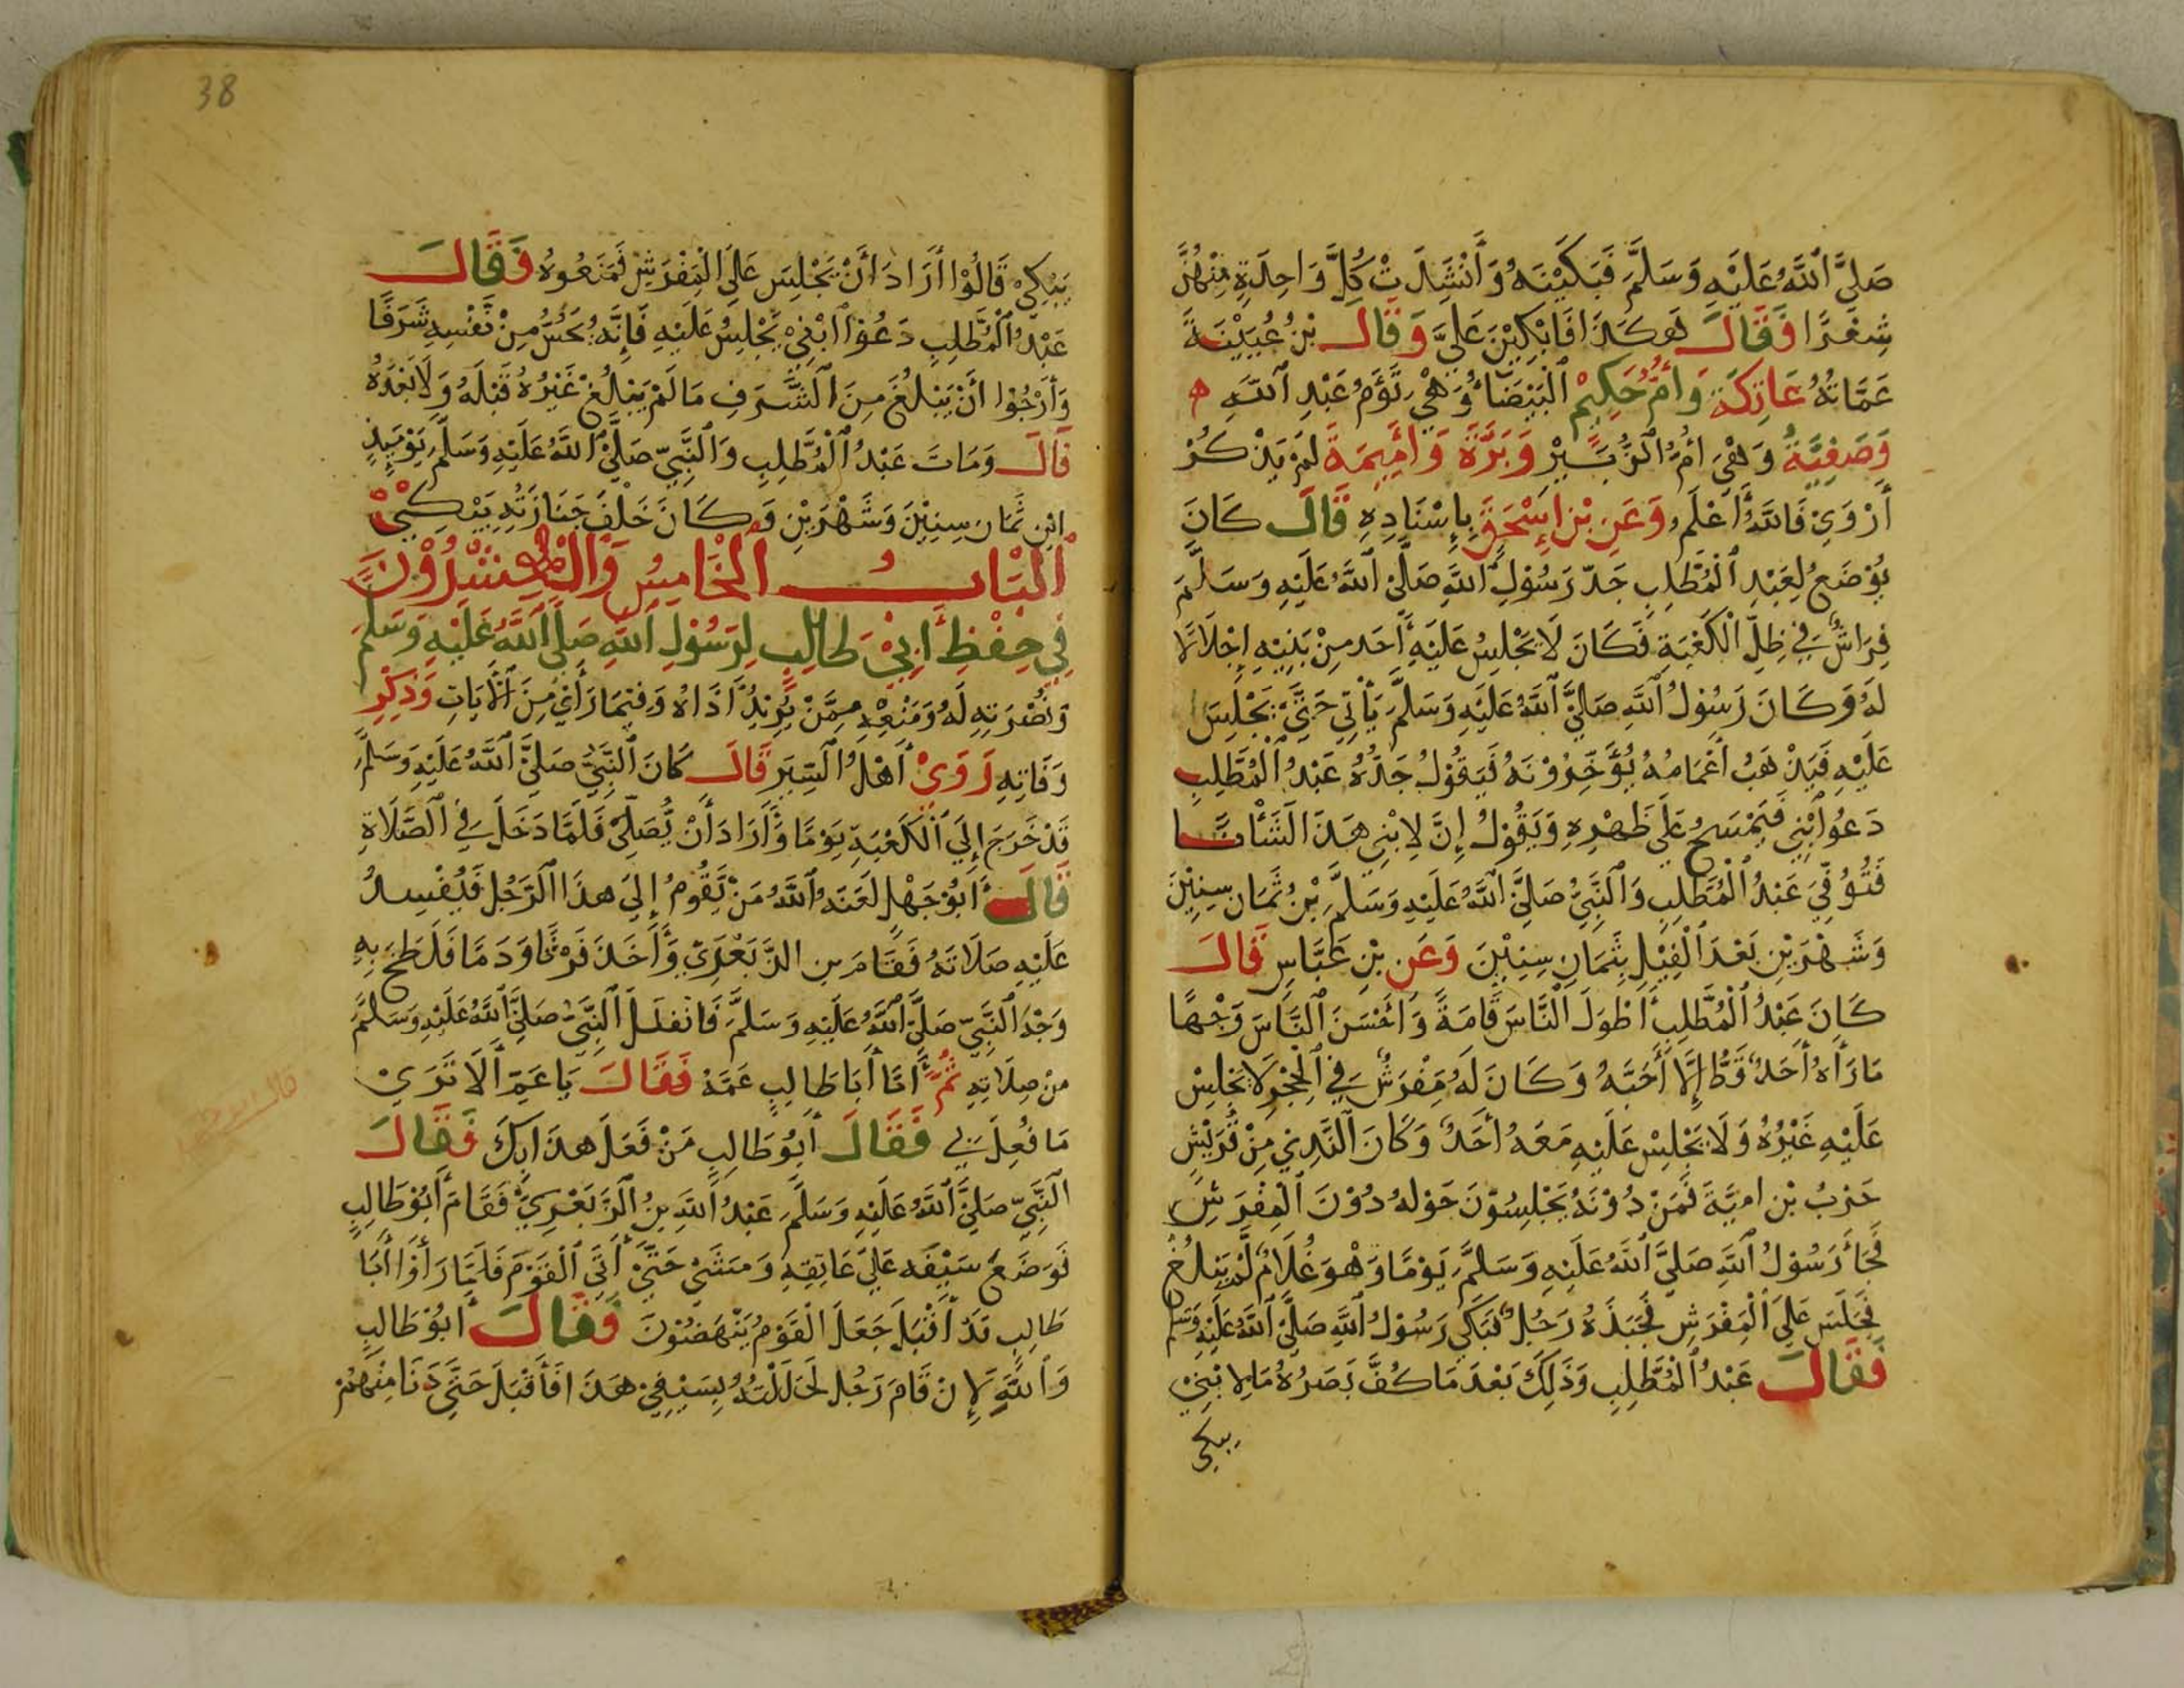 صَلَّى ٱللَّهُ عَلَيْهِ وَسَلَّمَ فَبَكَيْنَهُ وَأَنْشَدَتْ كُلُّ وَاحِدَةٍ مِنْهُنَّ
شِعْرًا فَقَالَ هَكَذَا فَابْكِيْنَ عَلَيَّ وَقَالَ بْنُ عُيَيْنَةَ
عَمَّاتُهُ عَاتِكَة وَأُمُّ حَكِيْمٍ الْبَيْضَاءُ وَهْيَ تَؤَمُ عَبْدِ ٱللَّهِ ه
وَصَفِيَّةُ وَهْيَ أُمُّ الزُّبَيْرِ وَبَرَّةَ وَأُمَيْمَةَ لَمْ يَذْكُرْ
أَرْوَيْ فَاللَّهُ أَعْلَمُ وَعَنِ بْنِ إِسْحَقَ بِإِسْنَادِهِ قَالَ كَانَ
يُوْضَعُ لِعَبْدِ ٱلْمُطَّلِبِ جَدِّ رَسُوْلِ ٱللَّهِ صَلَّىْ ٱللَّهُ عَلَيْهِ وَسَلَّمَ
فِرَاشٌ فِي ظِلِّ الْكَعْبَةِ فَكَانَ لَا يَجْلِسُ عَلَيْهِ أَحَد مِنْ بَنِيْهِ إِجْلَالًا
لَهُ وَكَانَ رَسُوْلُ ٱللَّهِ صَلَّىَ ٱللَّهُ عَلَيْهِ وَسَلَّمَ يَأْتِي حَتَّىَ يَجْلِسَ
عَلَيْهِ فَيَذْهَبُ أَعْمَامُهُ يُؤَخِّرُوْنَهُ فَيَقُوْلُ جَدُّهُ عَبْدُ ٱلْمُطَّلِبِ
دَعُوْا ٱبْنِي فَيَمْسَحُ عَلَى ظَهْرِهِ وَيَقُوْلُ إِنَّ لِابْنِي هَذَا لَشَأْنًا
فَتُوُفِّيَ عَبْدُ ٱلْمُطَّلِبِ وَالنَّبِيُّ صَلَّىَ ٱللَّهُ عَلَيْهِ وَسَلَّمَ بْنُ ثَمَانِ سِنِيْنَ
وَشَهْرَيْنِ بَعْدَ الْفِيْلِ بِثَمَانِ سِنِيْنَ وَعَنِ بْنِ عَبَّاسٍ قَالَ
كَانَ عَبْدُ ٱلْمُطَّلِبِ أَطْوَلَ النَّاسَ قَامَةً وَأَحْسَنَ ٱلنَّاسَ وَجْهًا
مَا رَأَهُ أَحَدٌ قَطُّ إِلَّا أَحَبَّهُ وَكَانَ لَهُ مِفْرَشٌ فِي ٱلْحِجْرِ لَا يَجْلِسْ
عَلَيْهِ غَيْرُهُ وَلَا يَجْلِسْ عَلَيْهِ مَعَهُ أَحَدٌ وَكَانَ ٱلنَّدِيْ مِنْ قُرَيْشٍ
حَرْبُ بْن امَيَّةَ فَمَنْ دُوْنَهُ يَجْلِسُوْنَ حَوْلهُ دُوْنَ ٱلْمِفْرَشِ
فَجَاءَ رَسُوْلُ ٱللَّهِ صَلَّىَ ٱللَّهُ عَلَيْهِ وَسَلَّمَ يَوْمًا وَهْوَ غُلَامٌ لَمْ يَبْلُغْ
فَجَلَسَ عَلَىَ ٱلْمِفْرَشِ فَجَبَذَهُ رَجُلٌ فَبَكَي رَسُوْلُ ٱللَّهِ صَلَّىْ ٱللَّهُ عَلَيْهِ وَسَلَّمَ
فَقَالَ عَبْدُ ٱلْمُطَّلِبِ وَذَلِكَ بَعْدَمَا كُفَّ بَصَرُهُ مَا لِابْنِيْ
يبكى
38
يَبْكِيْ قَالُوْا أَرَادَ أَنْ يَجْلِسَ عَلَى الْمِفْرَشِ فَمَنَعُوهُ فَقَالَ
عَبْدُ ٱلْمُطَّلِبِ دَعُوْا ابْنِيْ يَجْلِسُ عَلَيْهِ فَإِنَّهُ يُحَسُّ مِنْ نَفْسِهِ شَرَفًا
وَأَرْجُوْا أَنْ يَبْلُغَ مِنَ ٱلشَّرَفِ مَا لَمْ يَبْلُغْ غَيْرُهُ قَبْلَهُ وَلَا بَعْدَهُ
قَالَ وَمَاتَ عَبْدُ ٱلْمُطَّلِبِ وَالنَّبِيّ صَلَّىَ ٱللَّهُ عَلَيْهِ وَسَلَّمَ يَوْمَئِذٍ
ابْن ثَمَان سِنِيْنَ وَشَهْرَيْنِ وَكَانَ خَلْفَ جَنَازَتِهِ يَبْكِيْ
ٱلْبَابُ ٱلْخَامِسُ وَالْعِشْرُوْنَ
فِي حِفْظِ أَبِيْ طَالِبٍ لِرَسُوْلِ ٱللَّهِ صَلَّى ٱللَّهُ عَلَيْهِ وَسَلَّمَ
وَنُصْرَتِهِ لَهُ وَمَنْعِهِ مِمَّنْ يُرِيْدُ أَذَاهُ وَفِيْمَا رَأَيْ مِنَ ٱلْآيَاتِ وَذِكْرِ
وَفَاتِهِ رَوَىْ أَهْلُ ٱلسِّيَرِ قَالَ كَانَ ٱلنَّبِيُّ صَلَّىَ ٱللَّهُ عَلَيْهِ وَسَلَّمَ
قَدْ خَرَجَ إِلَى ٱلْكَعْبَةِ يَوْمًا وَأَرَادَ أَنْ يُصَلِّيْ فَلَمَّا دَخَلَ فِي ٱلصَّلَاةِ
قَالَ أَبُوْ جَهْلٍ لَعَنَهُ ٱللَّهُ مَنْ يَقُوْمُ إِلَىَ هذَا ٱلرَّجُلِ فَيُفْسِدُ
عَلَيْهِ صَلَاتَهُ فَقَامَ بن الزَّبَعْرَيْ وَأَخَذَ فَرْثًا وَدَمًا فَلَطَخَ بِهِ
وَجْهَ ٱلنَّبِيّ صَلَّىْ ٱللَّهُ عَلَيْهِ وَسَلَّمَ فَانْفَلَ ٱلنَّبِيُّ صَلَّىَ ٱللَّهُ عَلَيْهِ وَسَلَّمَ
مِنْ صِلَاتِهِ ثُمَّ أَتَا أَبَا طَالِبٍ عَمَّهُ فَقَالَ يَا عَمِّ أَلَا تَرَىْ
مَا فُعِلَ بِي فَقَالَ أَبُوْ طَالِبٍ مَنْ فَعَلَ هذَا بِكَ فَقَالَ
ٱلنَّبِيّ صَلَّىَ ٱللَّهُ عَلَيْهِ وَسَلَّمَ عَبْدُ ٱللَّهِ بنُ ٱلزَّبَعْرِيْ فَقَامَ أَبُوْ طَالِبٍ
فَوَضَعَ سَيْفَه عَلَىَ عَاتِقِهِ وَمَشَىْ حَتَّىَ أَتَى ٱلْقَوْمَ فَلَمَّا رَأَوْا أَبَا
طَالِبٍ قَدْ أَقْبَلَ جَعَلَ الْقَوْمُ يَنْهَضُوْنَ فَقَالَ أَبُوْ طَالِبٍ
وَٱللَّهِ لَإِنْ قَامَ رَجُل لَجَلَلْتُهُ بِسَيْفِيْ هَذَا فَأَقْبَلَ حَتَّىَ دَنَا مِنْهُمْ